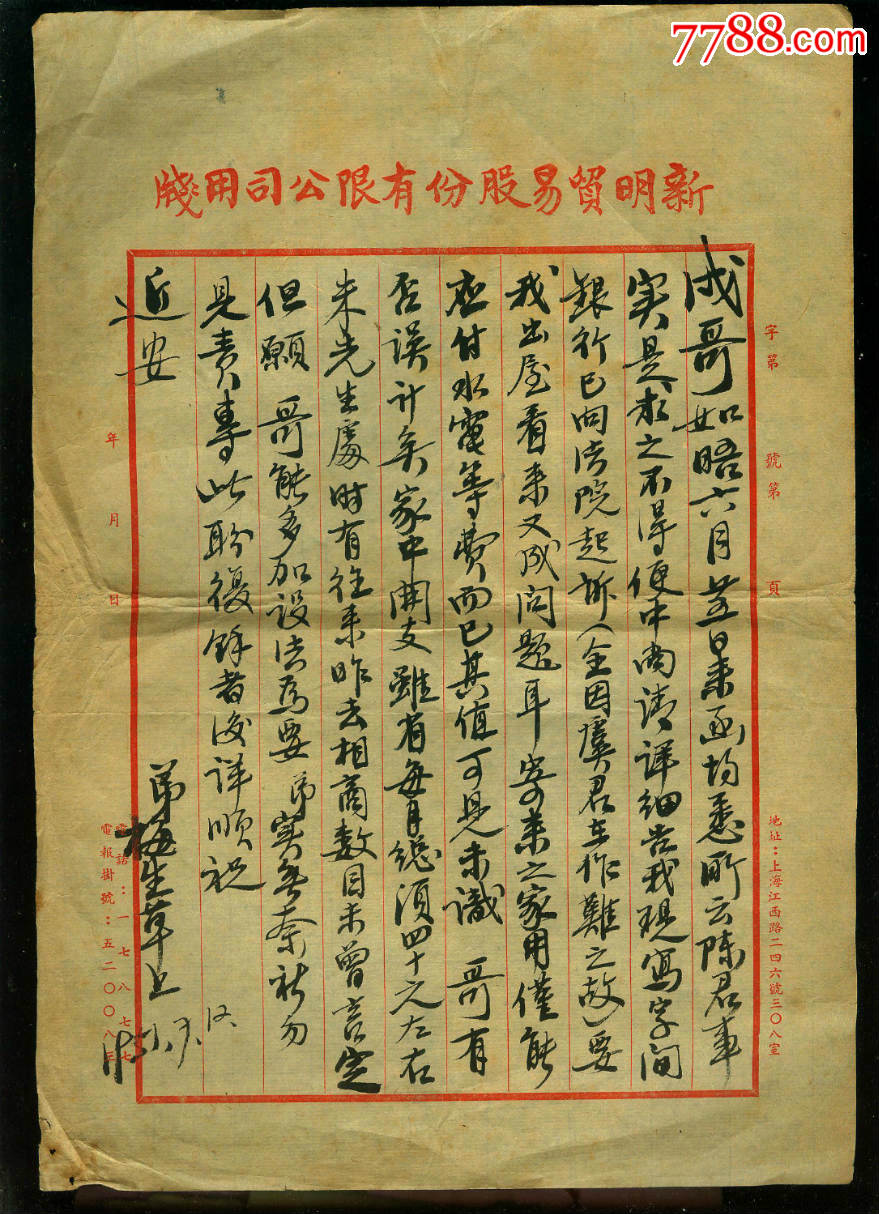 7788.com
新明貿易股份有限公司用牋
字第 號第 頁
地址：上海江西路二四六號三〇八室
成哥如晤六月廿五日来函均悉所云陈君事
实是求之不得便中尚请详细告我现寫字间
銀行已向法院起訴（全因虞君在作難之故）要
我出屋看来又成问题耳寄来之家用僅能
应付水電等費而已其值可見未識 哥有
否误计矣家中開支雖省每月總須四十元左右
朱先生處时有往来昨去相商数目未曾言定
但願 哥能多加设法为要弟实無奈祈勿
見责專此聆復餘者後详顺祝
近安
弟梅生草上
年 月 日
電話：一七八七七
電報掛號：五二〇〇八